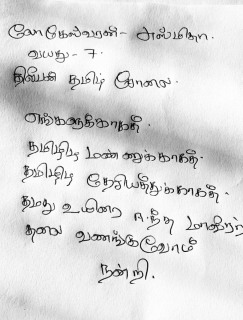 லோகேஸ்வரன் - அஸ்மிதா.
வயது - 7.
திலீபன் தமிழ் சோலை.
எங்களுக்காகத்.
தமிழீழ மண்ணுக்காகத்.
தமிழீழ தேசியத்துக்காகத்.
தமது உயிரை ஈந்த மாவீரர்
தலை வணங்குவோம்
நன்றி.